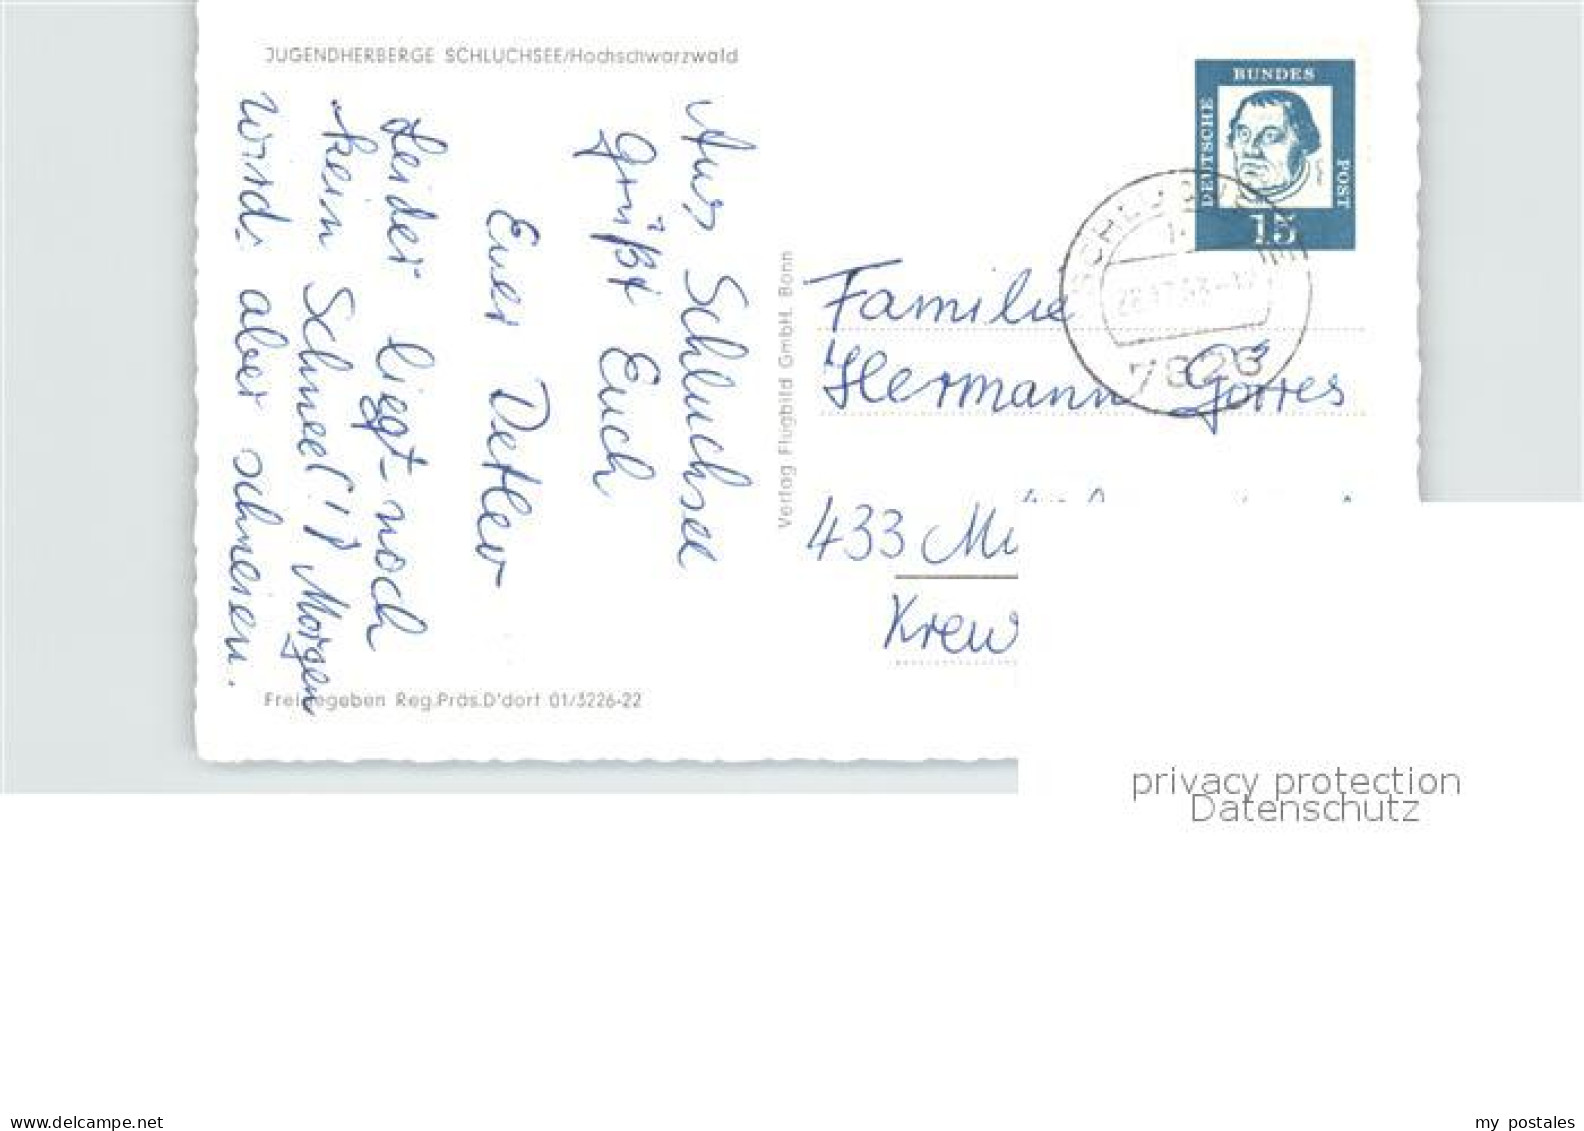 JUGENDHERBERGE SCHLUCHSEE/Hochschwarzwald
Aus Schluchsee
grüßt Euch
Euer Detlev
Leider liegt noch
kein Schnee!!! Morgen
wird's aber schneien.
Freigegeben Reg.Präs.D'dorf 01/3226-22
Verlag Flugbild GmbH. Bonn
DEUTSCHE
BUNDES
POST
15
7826
Familie
Hermann Görres
433 Mü
Krew
privacy protection
Datenschutz
www.delcampe.net
my postales